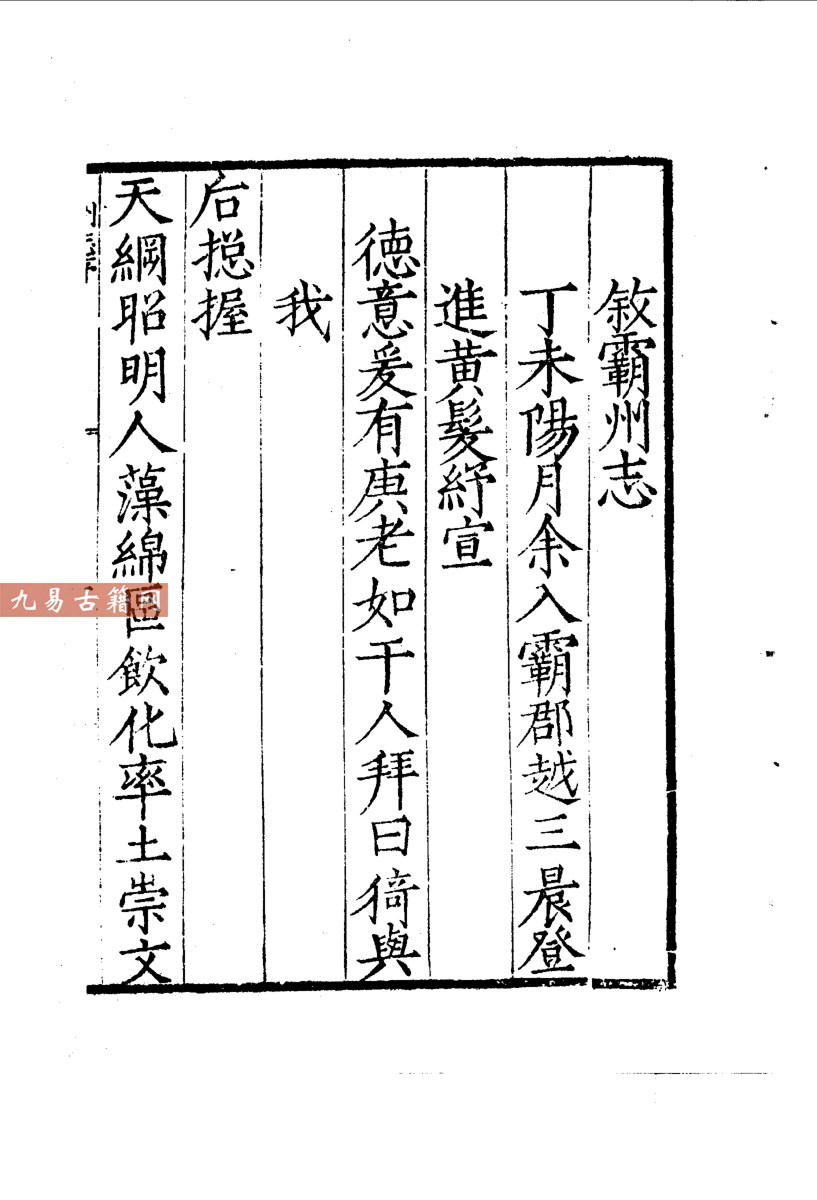 敘霸州志
丁未陽月余入霸郡越三晨登
進黄髮紓宣
德意爰有庚老如干人拜曰猗與
我
后揔握
天綱昭明人藻綿區飲化率土崇文
九易古籍网